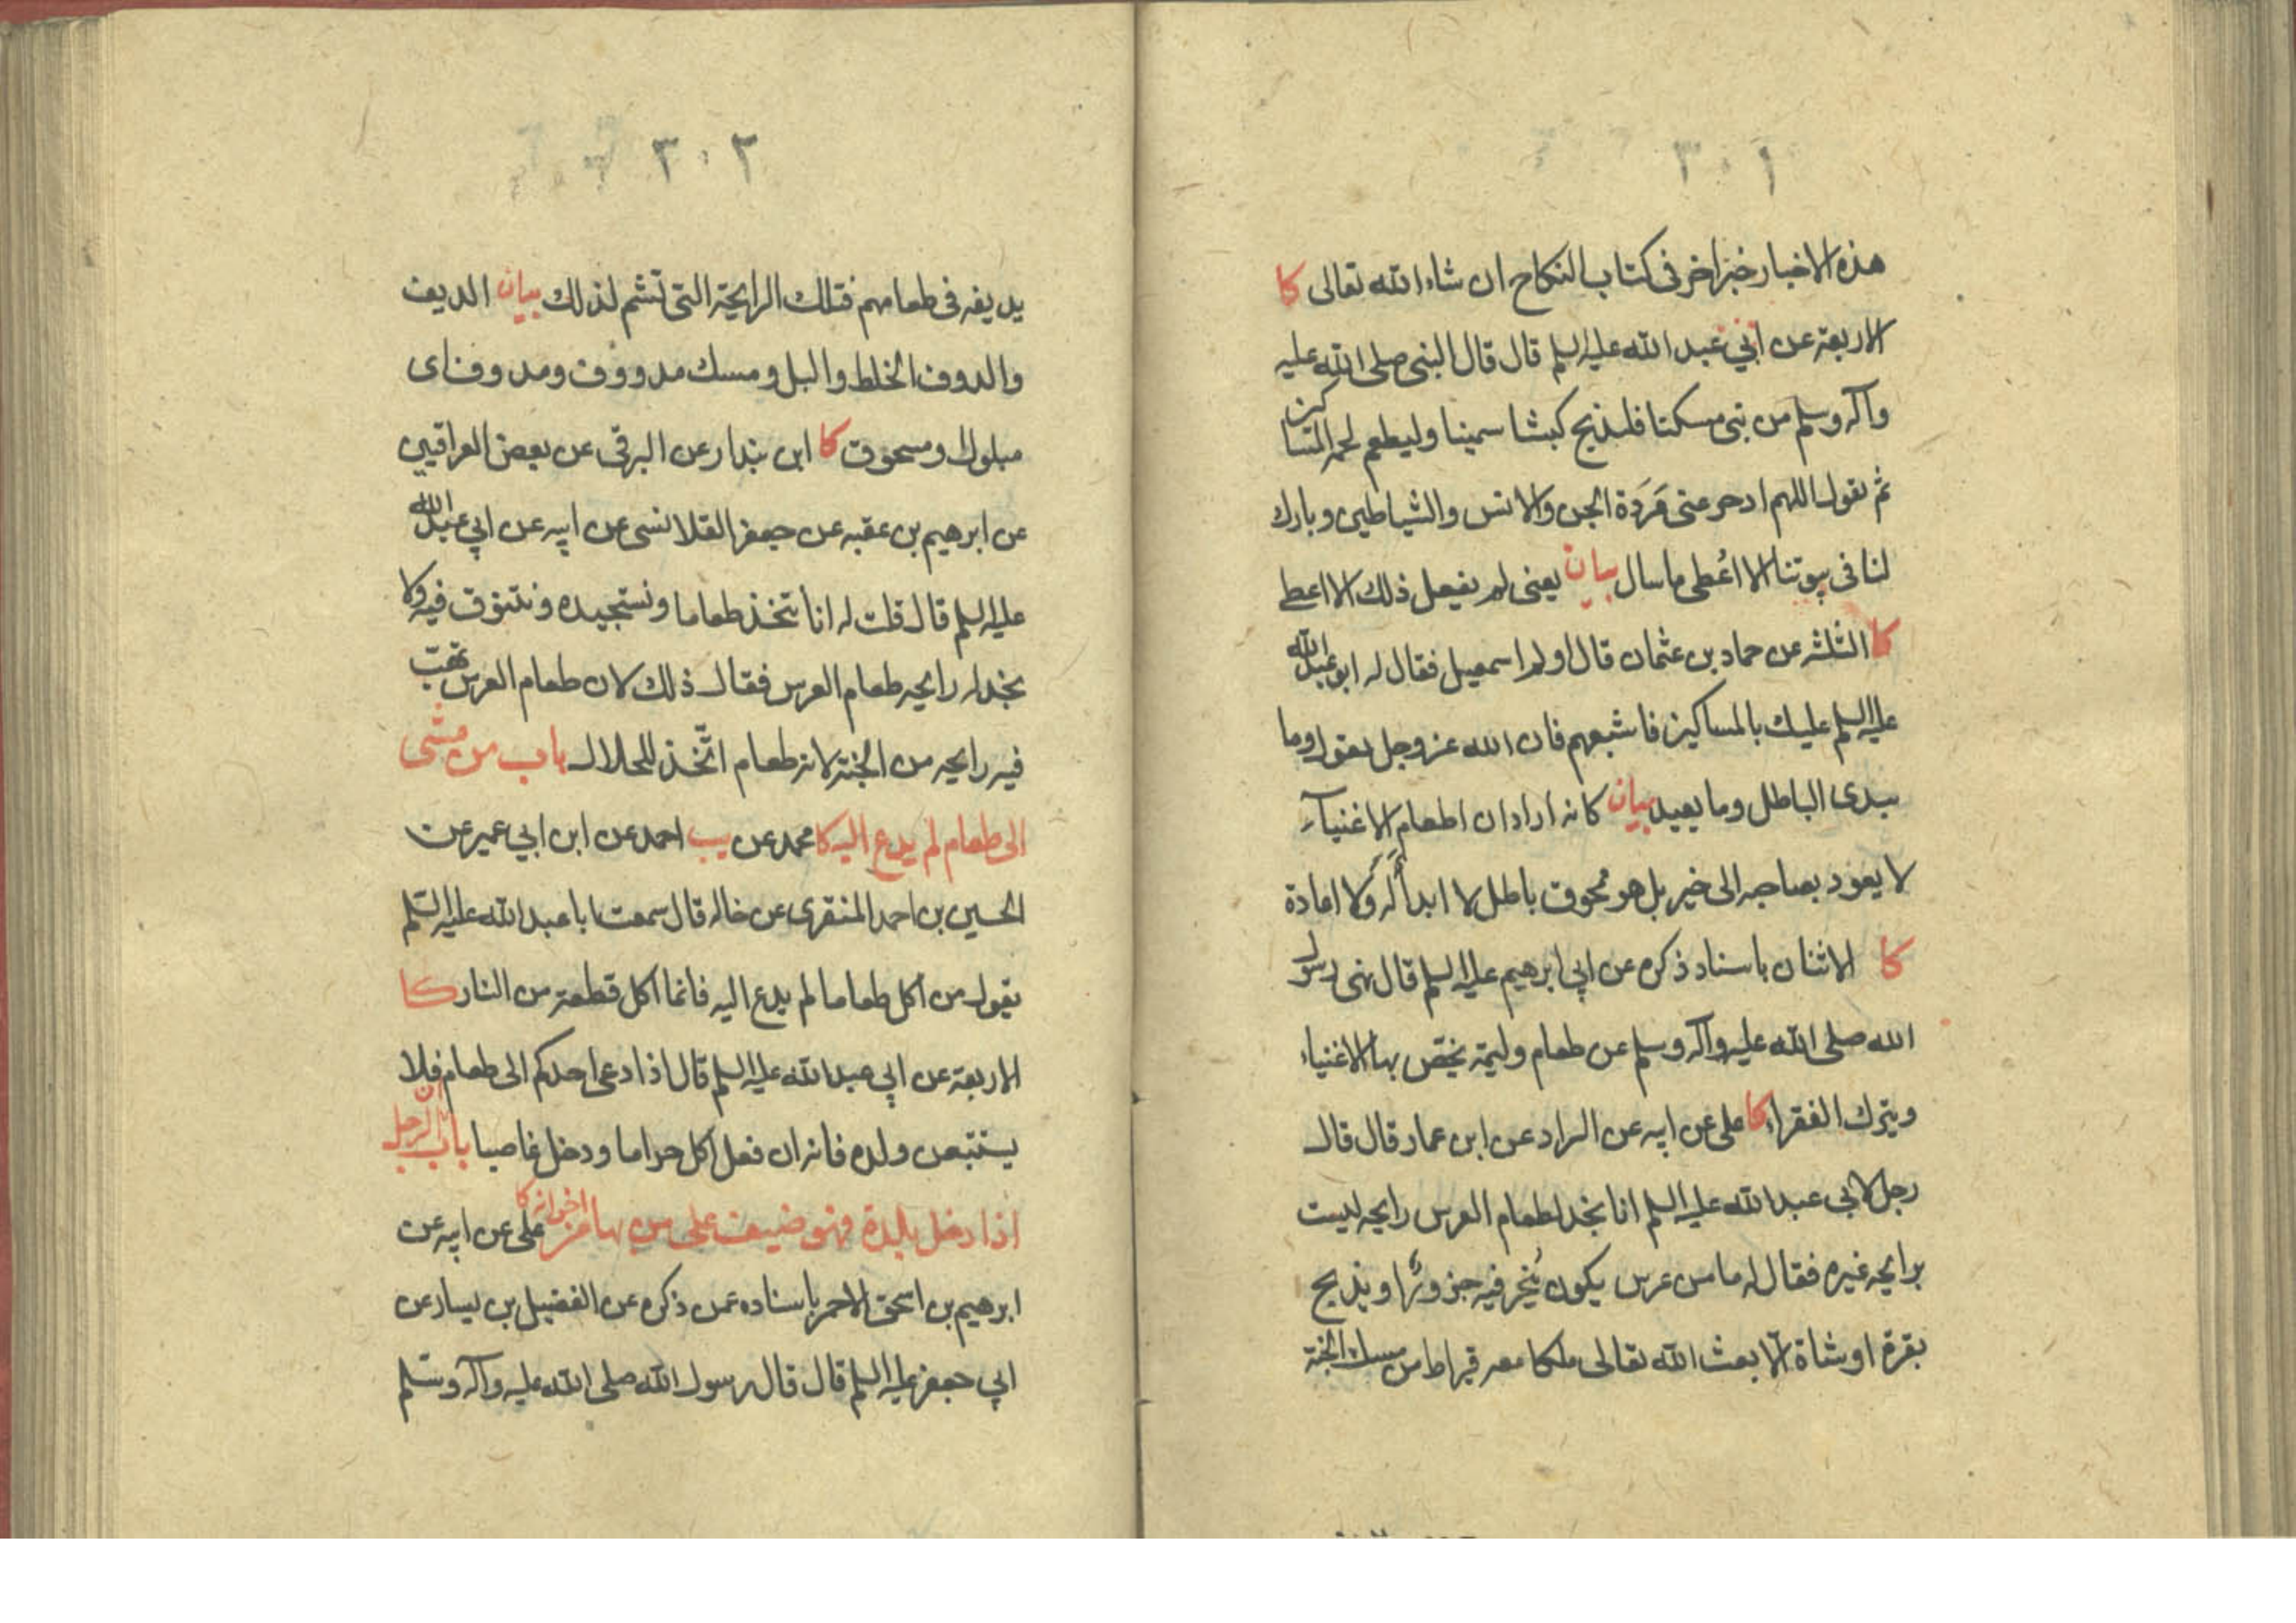 ٣٠١
هذه الاخبار خبر اخر فى كتاب النكاح ان شاء الله تعالى كا
الاربعة عن ابي عبد الله عليه السلم قال قال النبى صلى الله عليه
وآله وسلم من بنى مسكنا فليذبح كبشا سمينا وليطعم لحمه المساكين
ثم يقول اللهم ادحر عنى مردة الجن والانس والشياطين وبارك
لنا فى بيوتنا الا اعطى ما سال بيان يعنى لم يفعل ذلك الا اعطى
كا الثلثه عن حماد بن عثمان قال اولم اسمعيل فقال له ابو عبد الله
عليه السلم عليك بالمساكين فاشبعهم فان الله عز وجل يقول وما
يبدى الباطل وما يعيد بيان كانه اراد ان اطعام الاغنياء
لا يعود بصاحبه الى خير بل هو ممحوق باطل لا ابداً له ولا اعادة
كا الاثنان باسناد ذكره عن ابي ابرهيم عليه السلم قال نهى رسول
الله صلى الله عليه وآله وسلم عن طعام وليمة يخص بها الاغنياء
ويترك الفقراء كا على عن ابيه عن السراد عن ابن عمار قال قال
رجل لابي عبد الله عليه السلم انا نجد لطعام العرس رايحه ليست
برايحه غيره فقال له ما من عرس يكون يُنحر فيه جزورًا ويذبح
بقرة او شاة الا بعث الله تعالى ملكا معه قيراط من مسك الجنة
٣٠٢
يديفه فى طعامهم فتلك الرايحة التى تشم لذلك بيان الديف
والدوف الخلط والبل ومسك مدووف ومدوف اى
مبلول ومسحوق كا ابن بندار عن البرقى عن بعض العراقيين
عن ابرهيم بن عقبه عن جعفر القلانسى عن ابيه عن ابي عبد الله
عليه السلم قال قلت له انا نتخذ طعاما ونستجيده ونتنوق فيه ولا
نجد له رايحه طعام العرس فقال ذلك لان طعام العرس تهب
فيه رايحه من الجنة لانه طعام اتّخذ للحلال باب من مشى
الى طعام لم يدع اليه كا محمد عن يب احمد عن ابن ابي عمير عن
الحسين بن احمد المنقرى عن خاله قال سمعت ابا عبد الله عليه السّلم
يقول من اكل طعاما لم يدع اليه فانما اكل قطعة من النار كا
الاربعة عن ابي عبد الله عليه السلم قال اذا دعى احدكم الى طعام فلا
يستتبعن ولده فانه ان فعل اكل حراما ودخل غاصبا باب ان الرجل
اذا دخل بلدة فهو ضيف على من بها من اخوانه كا على عن ابيه عن
ابرهيم بن اسحق الاحمر باسناده عمن ذكره عن الفضيل بن يسار عن
ابي جعفر عليه السلم قال قال رسول الله صلى الله عليه وآله وسلم